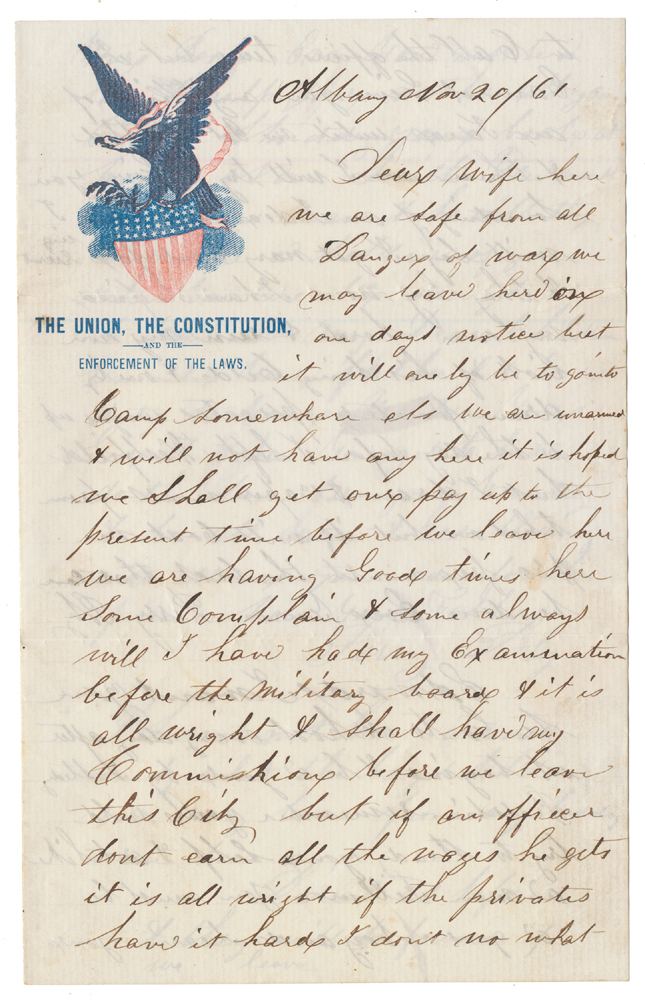 Albany Nov 20/61
Dear Wife here
we are safe from all
Danger of war we
may leave here in
one days notice but
it will onely be to go into
THE UNION, THE CONSTITUTION,
AND THE
ENFORCEMENT OF THE LAWS.
Camp somewhare els we are unarmed
& will not have any here it is hoped
we shall get our pay up to the
present time before we leave here
we are having Good times here
some Complain & some always
will I have had my Examination
before the Military board & it is
all wright & shall have my
Commishion before we leave
this City but if an officer
dont earn all the wages he gets
it is all wright if the privates
have it hard I dont no what